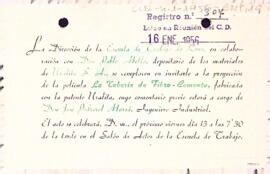 Registro n.º 304
Leído en Reunión del C. D.
16 ENE. 1956
La Dirección de la Escuela de Trabajo de
ción con Don Pablo depositario de los materiales
de Uralita S. A., se complacen en invitarle a la proyección
de la película La Tubería de Fibro-Cemento, fabricada
con la patente Uralita, cuyo comentario previo estará a cargo de
Don José Ingeniero Industrial.
El acto se celebrará, D. m., el próximo viernes día 13 a las 7'30
de la tarde en el Salón de Actos de la Escuela de Trabajo.